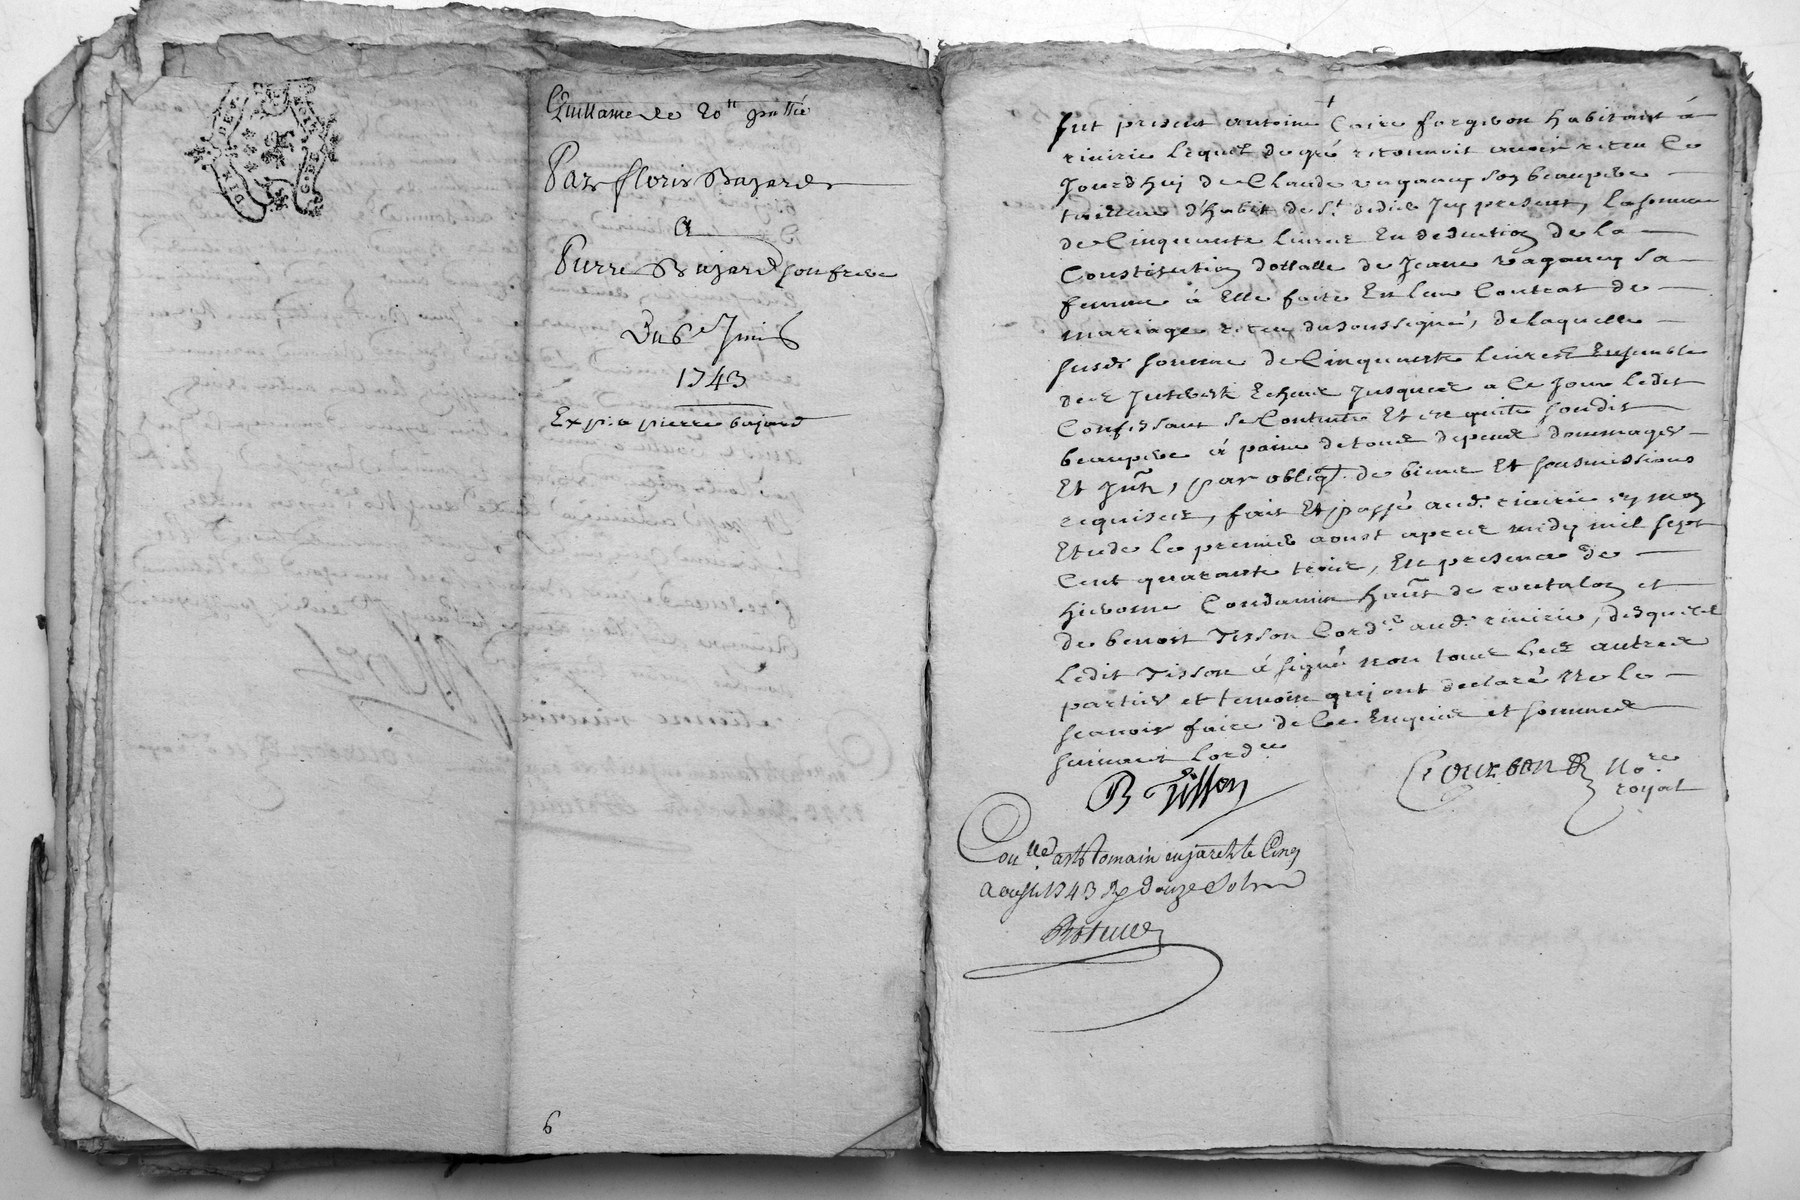 Quittance de 20ᵗᵗ
Par floris Bajard
a
Pierre Bajard son frere
Du 6e Juin
1743
Exp. a pierre bajard
6
Fut present antoine Coire forgeron habitant á
rivirie lequel de gré reconnoit avoir receu Ce
Jourdhuj de Claude ragaucy son beaupere
tailleur dhabit de St didier Icy present, la somme
de Cinquante livres En deduction de la
Constitution dottalle de Jeane ragaucy sa
femme á Elle faite En leur Contrat de
mariage receu du soussigné, de laquelle
susd. somme de Cinquante livres Ensemble
des Interest Echeus Jusques a Ce Jour ledit
Confessant se Contente Et en quitte sondit
beaupere á paine de tous depens dommages
Et Jnts, par obligõn de biens Et sousmissions
requises, fait Et passé aud. rivirie en mon
Etude le premier aoust apres midy mil sept
Cent quarante trois, En presence de
hierosme Condamin hañt de rontalon et
de benoist Tisson Cord.er aud. rivirie, desquels
ledit Tisson á signé non tous les autres
parties et temoin quj ont declaré Ne le
scavoir faire de Ce Enquis et sommes
suivant Lord.ce
B Tisson
Courbon No.re
royal
Con.lle a St Romain en jarest le Cinq
Aoust 1743 R douze sols